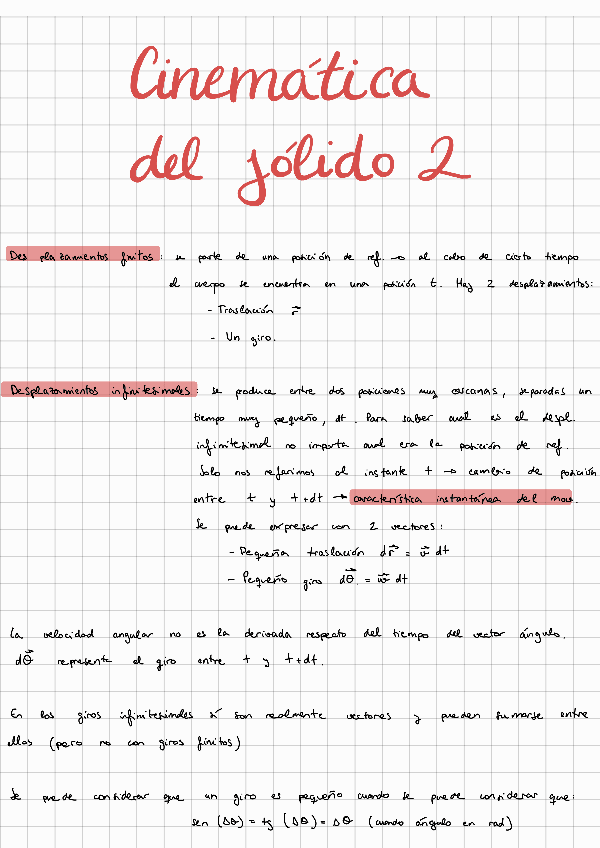 Cinemática
del sólido 2
Desplazamientos finitos: se parte de una posición de ref. → al cabo de cierto tiempo
el cuerpo se encuentra en una posición t. Hay 2 desplazamientos:
- Traslación r⃗
- Un giro.
Desplazamientos infinitesimales: se produce entre dos posiciones muy cercanas, separadas un
tiempo muy pequeño, dt. Para saber cual es el despl.
infinitesimal no importa cual era la posición de ref.
Solo nos referimos al instante t → cambio de posición
entre t y t+dt → característica instantánea del mov.
Se puede expresar con 2 vectores:
- Pequeña traslación dr⃗ = v⃗ dt
- Pequeño giro dθ⃗ = w⃗ dt
La velocidad angular no es la derivada respecto del tiempo del vector ángulo.
dθ⃗ representa el giro entre t y t+dt.
En los giros infinitesimales sí son realmente vectores y pueden sumarse entre
ellos (pero no con giros finitos)
Se puede considerar que un giro es pequeño cuando se puede considerar que:
sen (Δθ) = tg (Δθ) = Δθ (cuando ángulo en rad)